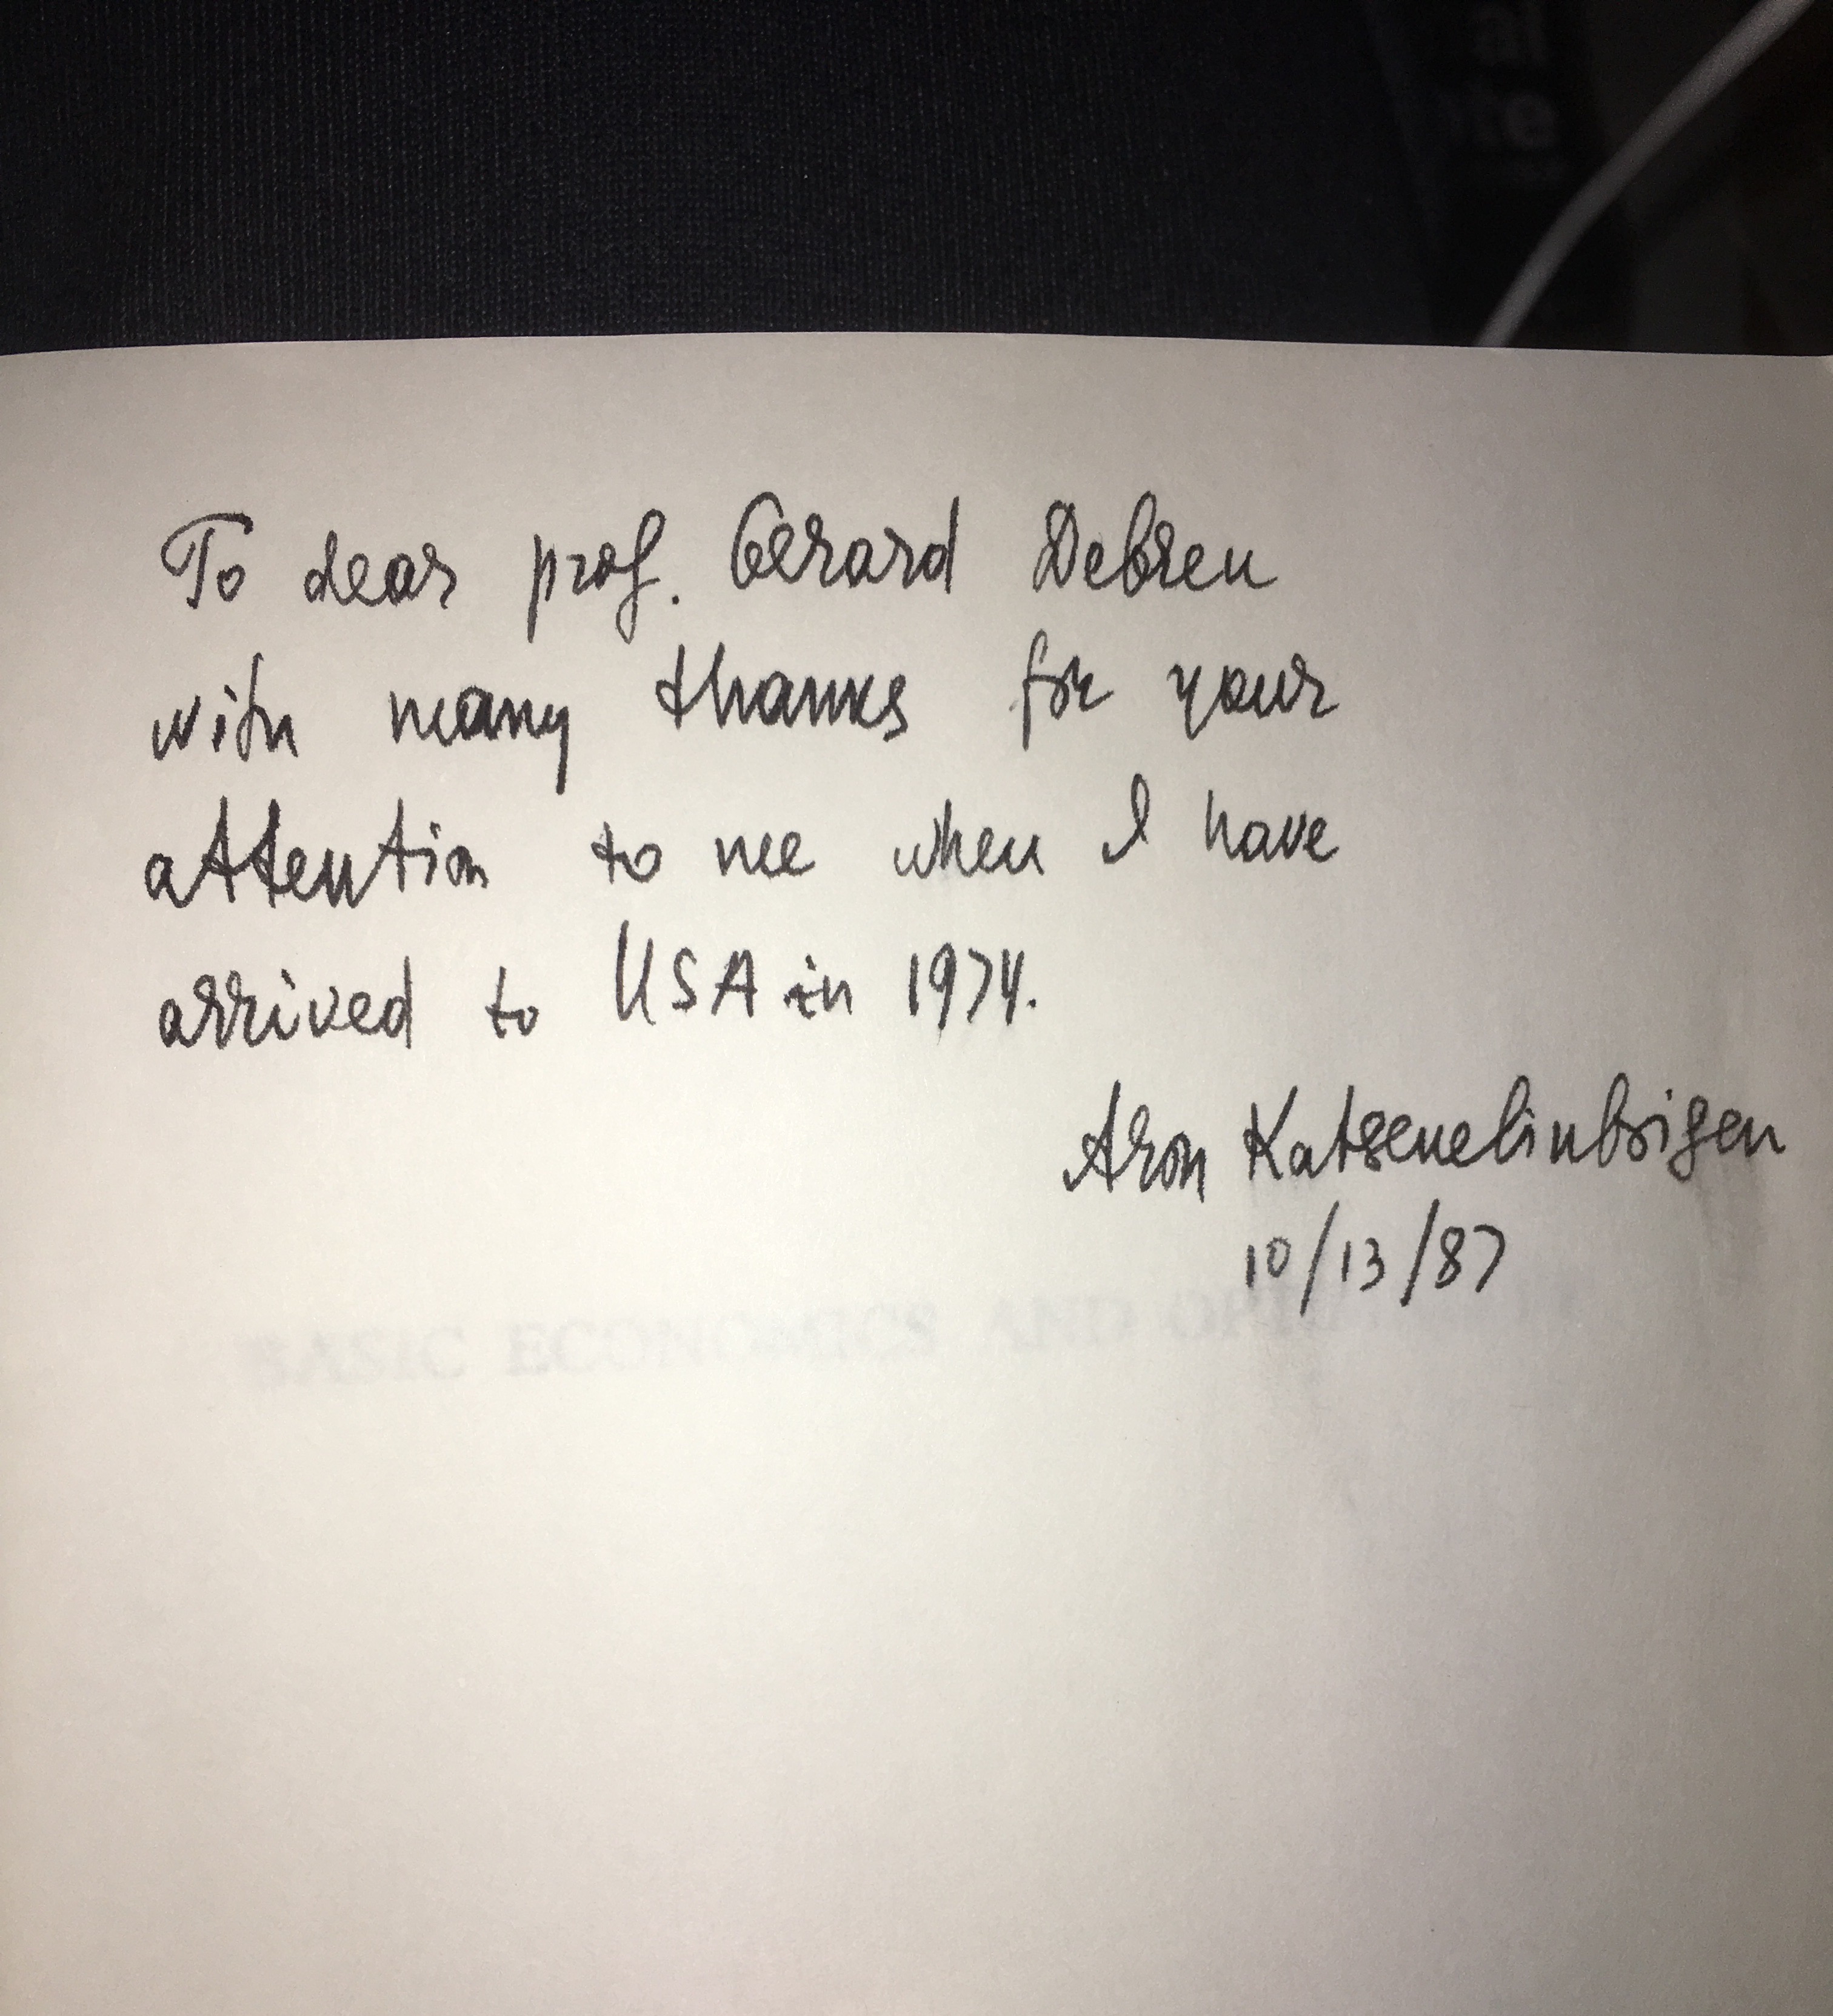 To dear prof. Gerard Debreu
with many thanks for your
attention to me when I have
arrived to USA in 1974.
Aron Katsenelinboigen
10/13/87
BASIC ECONOMICS AND